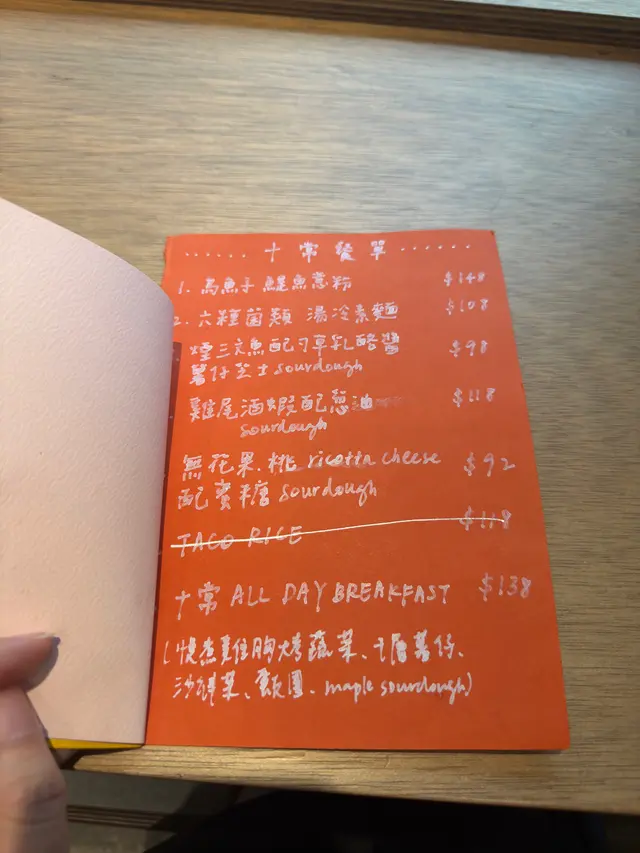 ...... 十常餐單 ......
1. 烏魚子 鯷魚意粉 $148
2. 六種菌類 湯冷素麵 $108
煙三文魚配刁草乳酪醬 $98
薯仔芝士 sourdough
雞尾酒蝦配葱油 $118
sourdough
無花果.桃 ricotta cheese $92
配蜜糖 sourdough
TACO RICE $118
十常 ALL DAY BREAKFAST $138
(慢煮雞胸 烤蔬菜、薯仔、
沙律菜、maple sourdough)